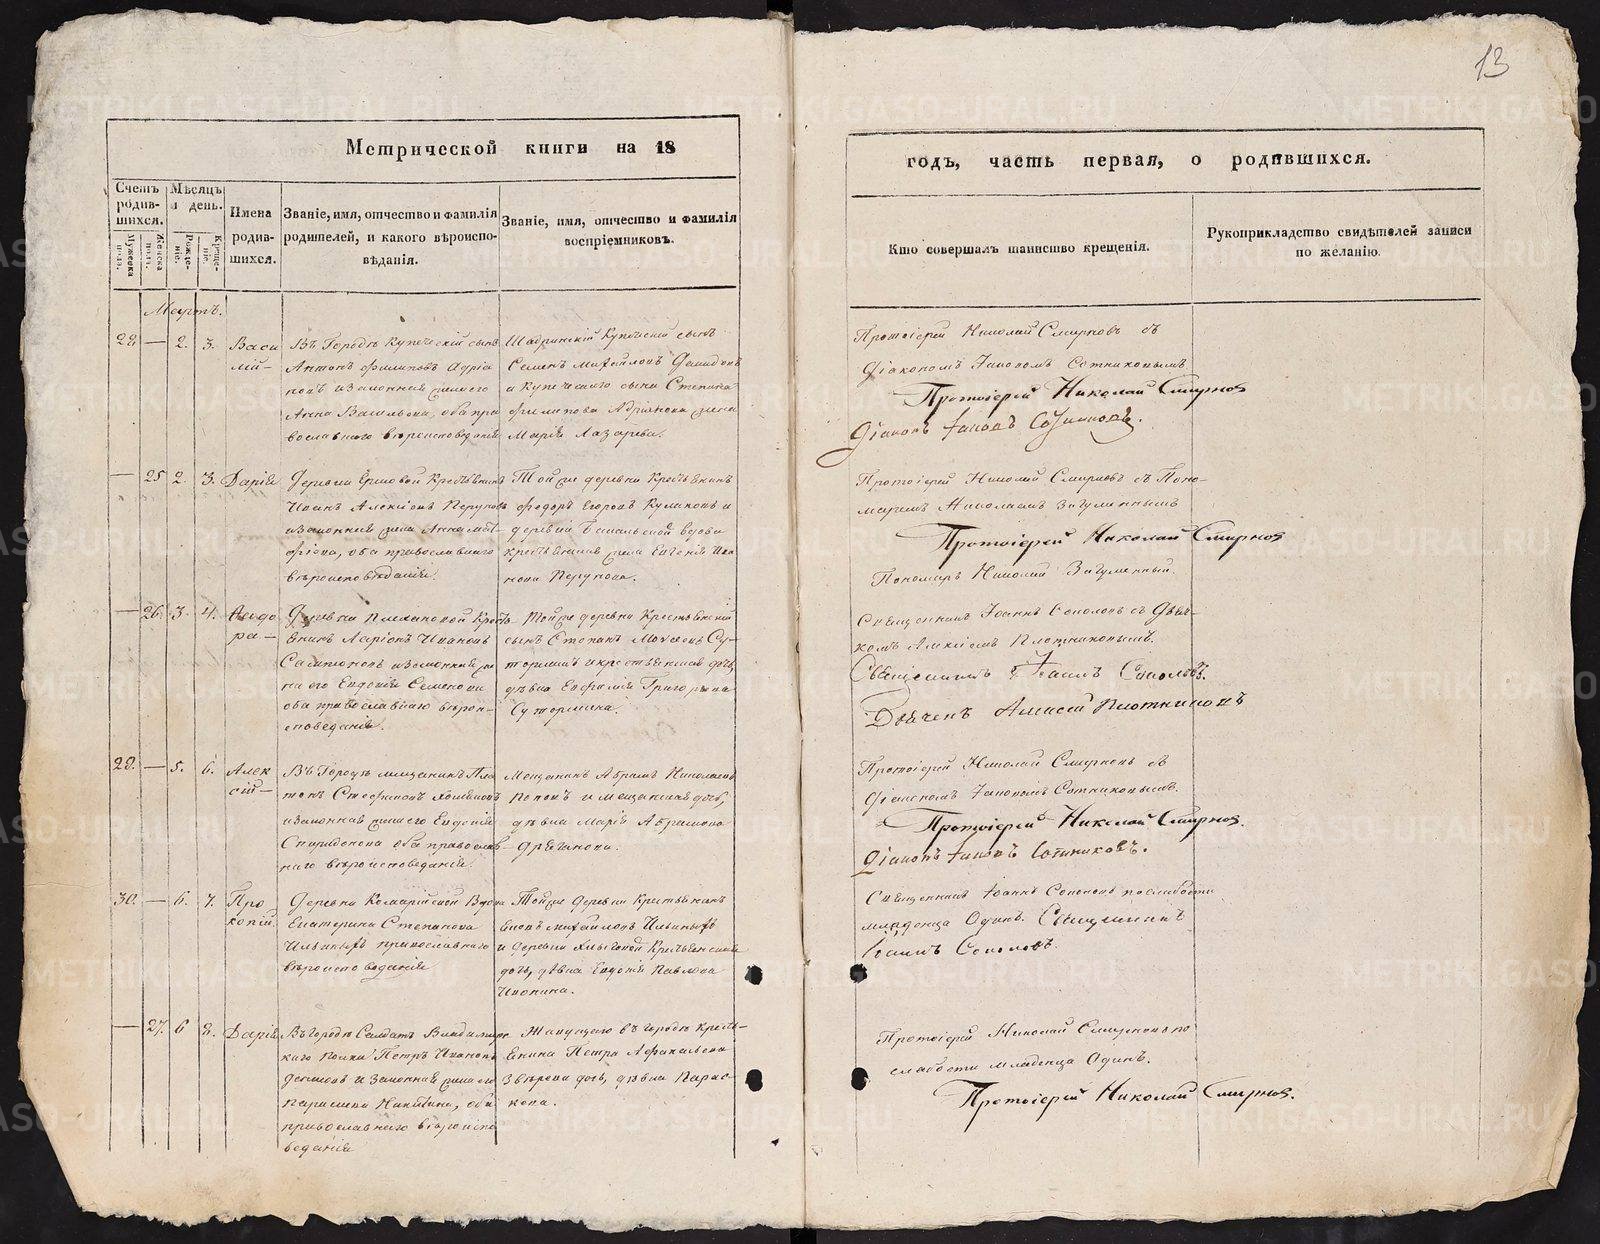 13
Метрической книги на 18
годъ, часть первая, о родившихся.
Счетъ родив-шихся.
Мужеска пола.
Женска пола.
Мѣсяцъ и день.
Рожде-ніе.
Креще-ніе.
Имена родив-шихся.
Званіе, имя, отчество и фамилія
родителей, и какого вѣроиспо-
вѣданія.
Званіе, имя, отчество и фамилія
воспріемниковъ.
Кто совершалъ таинство крещенія.
Рукоприкладство свидѣтелей записи
по желанію.
Мартъ.
28. — 2. 3. Васи
лій —
Въ Городѣ Купеческій сынъ
Антонъ Филиповъ Адріа
новъ и законная жена его
Анна Васильева, оба пра
вославнаго вѣроисповеданія
Шадринскій Купеческій сынъ
Семенъ Михайловъ
и Купеческаго сына Степана
Филипова Адріанова жена
Марія Лазарева.
Протоіерей Николай Смирновъ съ
Діакономъ Іаковомъ Сотниковымъ
Протоіерей Николай Смирнов
Діаконъ Іаковъ Сотниковъ.
— 25 2. 3. Дарія
Деревни Ершовой Крестьянинъ
Иванъ Алексіевъ Перунов
и законная жена Анна
оба православнаго
вѣроисповѣданія.
Той же деревни Крестьянинъ
Федоръ Егоровъ Куликовъ и
деревни вдова
крестьянская жена Евгенія Ива
нова Перунова.
Протоіерей Николай Смирновъ съ Поно-
маремъ Николаемъ Загуменнымъ
Протоіерей Николай Смирнов
Пономарь Николай Загуменный.
— 26. 3. 4. Феодо
ра —
Деревни Плехановой Кресть
янинъ Ларіонъ Ивановъ
Сампсоновъ и законная же
на его Евдокія Семенова
оба православнаго вѣрои-
споведанія.
Той же деревни Крестьянскій
сынъ Степанъ Моисеевъ Су-
торминъ и крестьянская дочь,
дѣвка Евфимія Григорьева
Сутормина.
Священникъ Іоаннъ Соколовъ съ Дьяч-
комъ Алексіемъ Плотниковымъ.
Священникъ Іоаннъ Соколовъ.
Дьячекъ Алексей Плотниковъ
29. — 5. 6. Алек
сій —
Въ Городѣ мещанинъ Пла
тонъ Стефановъ
и законная жена его Евдокія
Спиридонова оба православ-
наго вѣроисповеданія.
Мещанинъ Абрамъ Николаевъ
Поповъ и мещанская дочь,
дѣвка Марія Абрамова
Протоіерей Николай Смирновъ съ
Діакономъ Іаковомъ Сотниковымъ.
Протоіерей Николай Смирнов.
Діаконъ Іаковъ Сотниковъ.
30. — 6. 7. Про
копій.
Деревни Комарійской Вдова
Екатерина Степанова
Ильиныхъ православнаго
вѣроисповеданія
Той же деревни Крестьянинъ
Михайловъ Ильиныхъ
и деревни Хлызовой Крестьянская
дочь, дѣвка Евдокія Павлова
Иконина.
Священникъ Іоаннъ Соколовъ по слабости
младенца Одинъ. Священникъ
Іоаннъ Соколовъ.
— 27. 6 8. Дарія
Въ городѣ Солдатъ Владимирс
каго полка Петръ Ивановъ
и законная жена его
Параскева Никитина, оба
православнаго вѣроиспо
веданія
Живущаго въ городѣ кресть-
янина Петра Афанасьева
Звѣрева дочь, дѣвка Парас-
кева.
Протоіерей Николай Смирновъ по
слабости младенца Одинъ.
Протоіерей Николай Смирнов.
METRIKI.GASO-URAL.RU